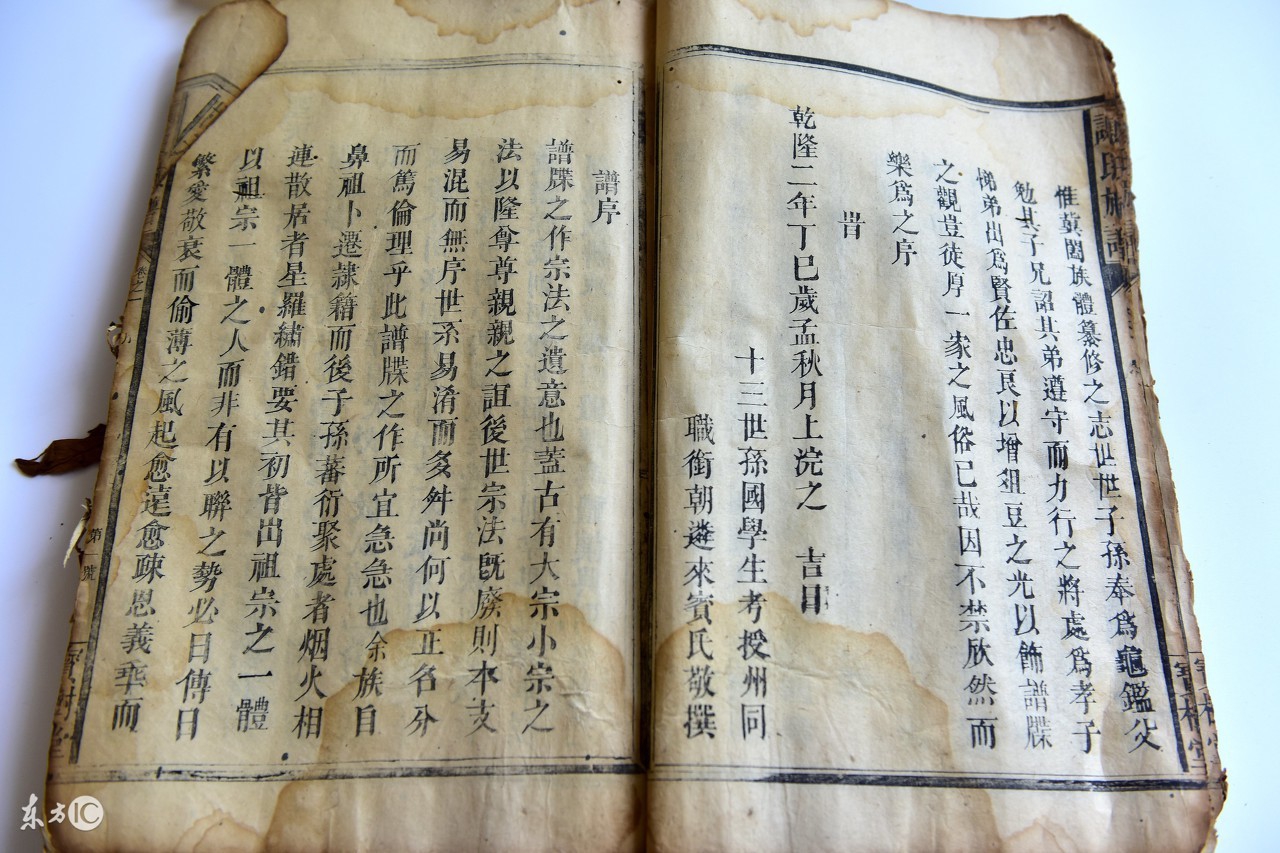 惟冀闔族體纂修之志世世子孫奉爲龜鑑父
勉其子兄詔其弟遵守而力行之將處爲孝子
悌弟出爲賢佐忠良以增俎豆之光以飾譜牒
之觀豈徒厚一家之風俗已哉因不禁欣然而
樂爲之序
旹
乾隆二年丁巳歲孟秋月上浣之 吉日
十三世孫國學生考授州同
職銜朝遴來賓氏敬撰
譜序
譜牒之作宗法之遺意也蓋古有大宗小宗之
法以隆尊尊親親之誼後世宗法既廢則本支
易混而無序世系易淆而多舛尚何以正名分
而篤倫理乎此譜牒之作所宜急急也余族自
鼻祖卜遷隷籍而後子孫蕃衍聚處者烟火相
連散居者星羅繡錯要其初皆出祖宗之一體
以祖宗一體之人而非有以聯之勢必日傳日
繁愛敬衰而偷薄之風起愈遠愈疎恩義乖而
第一號
东方IC